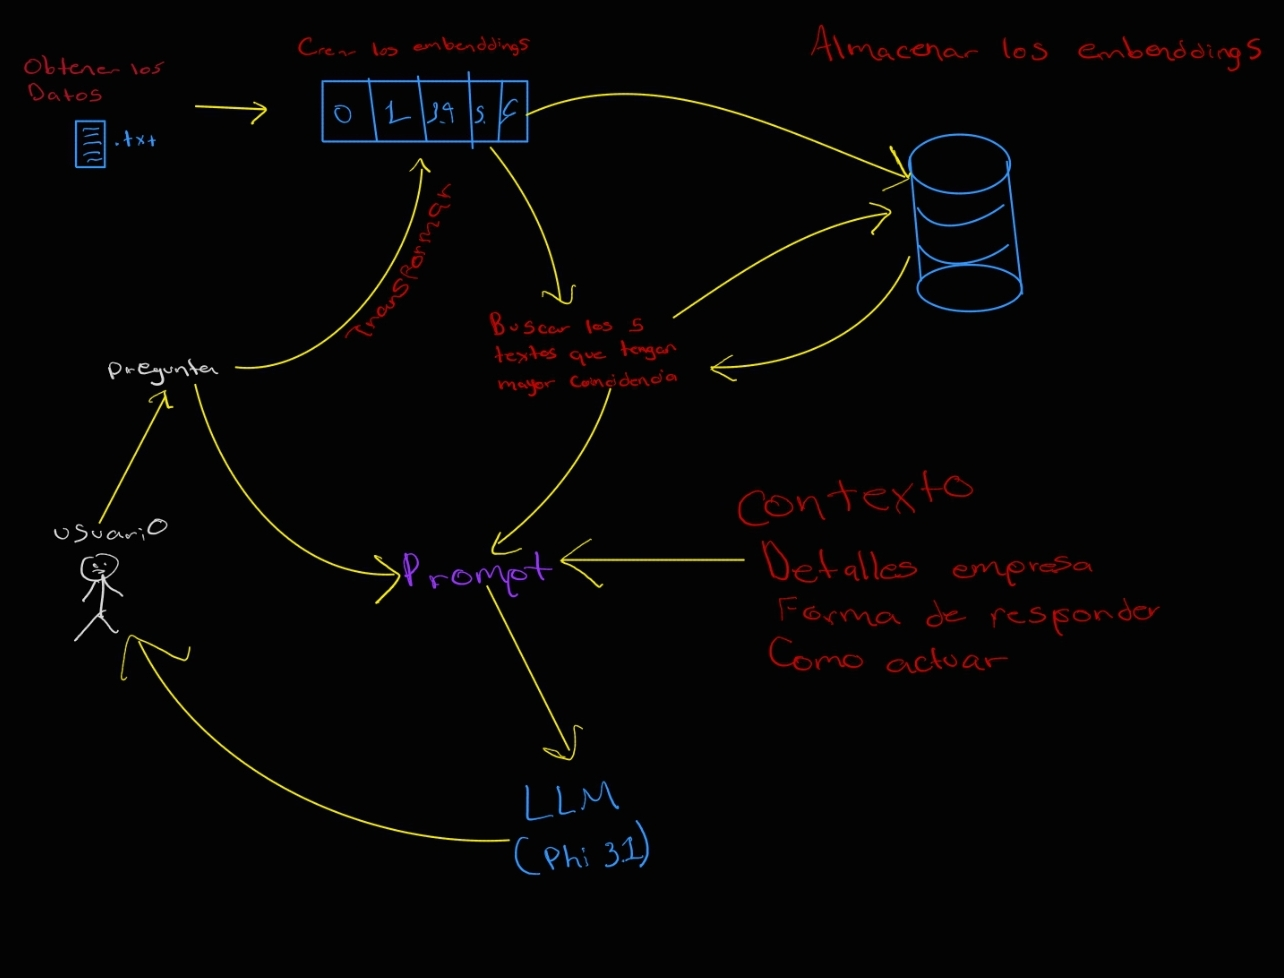 Obtener los
Datos
.txt
Crear los embenddings
0 1 3.4 5. 6
Almacenar los embenddings
Transformar
Pregunta
Buscar los 5
textos que tengan
mayor coincidencia
usuario
Prompt
Contexto
Detalles empresa
Forma de responder
Como actuar
LLM
(Phi 3.1)